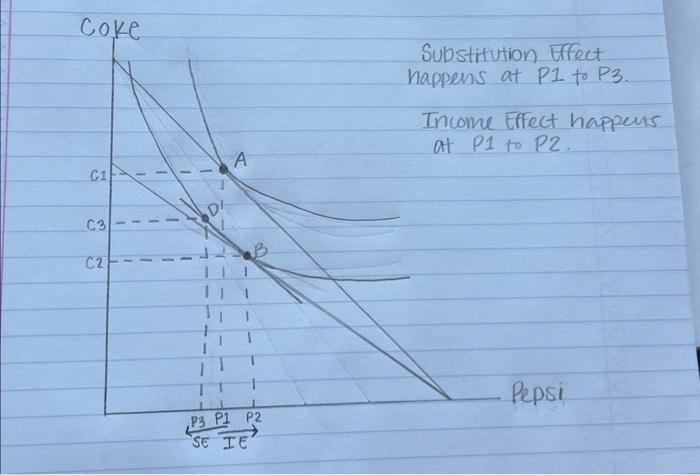 Coke
Substitution Effect
happens at P1 to P3.
Income Effect happens
at P1 to P2.
A
C1
D
C3
B
C2
Pepsi
P3 P1 P2
SE IE